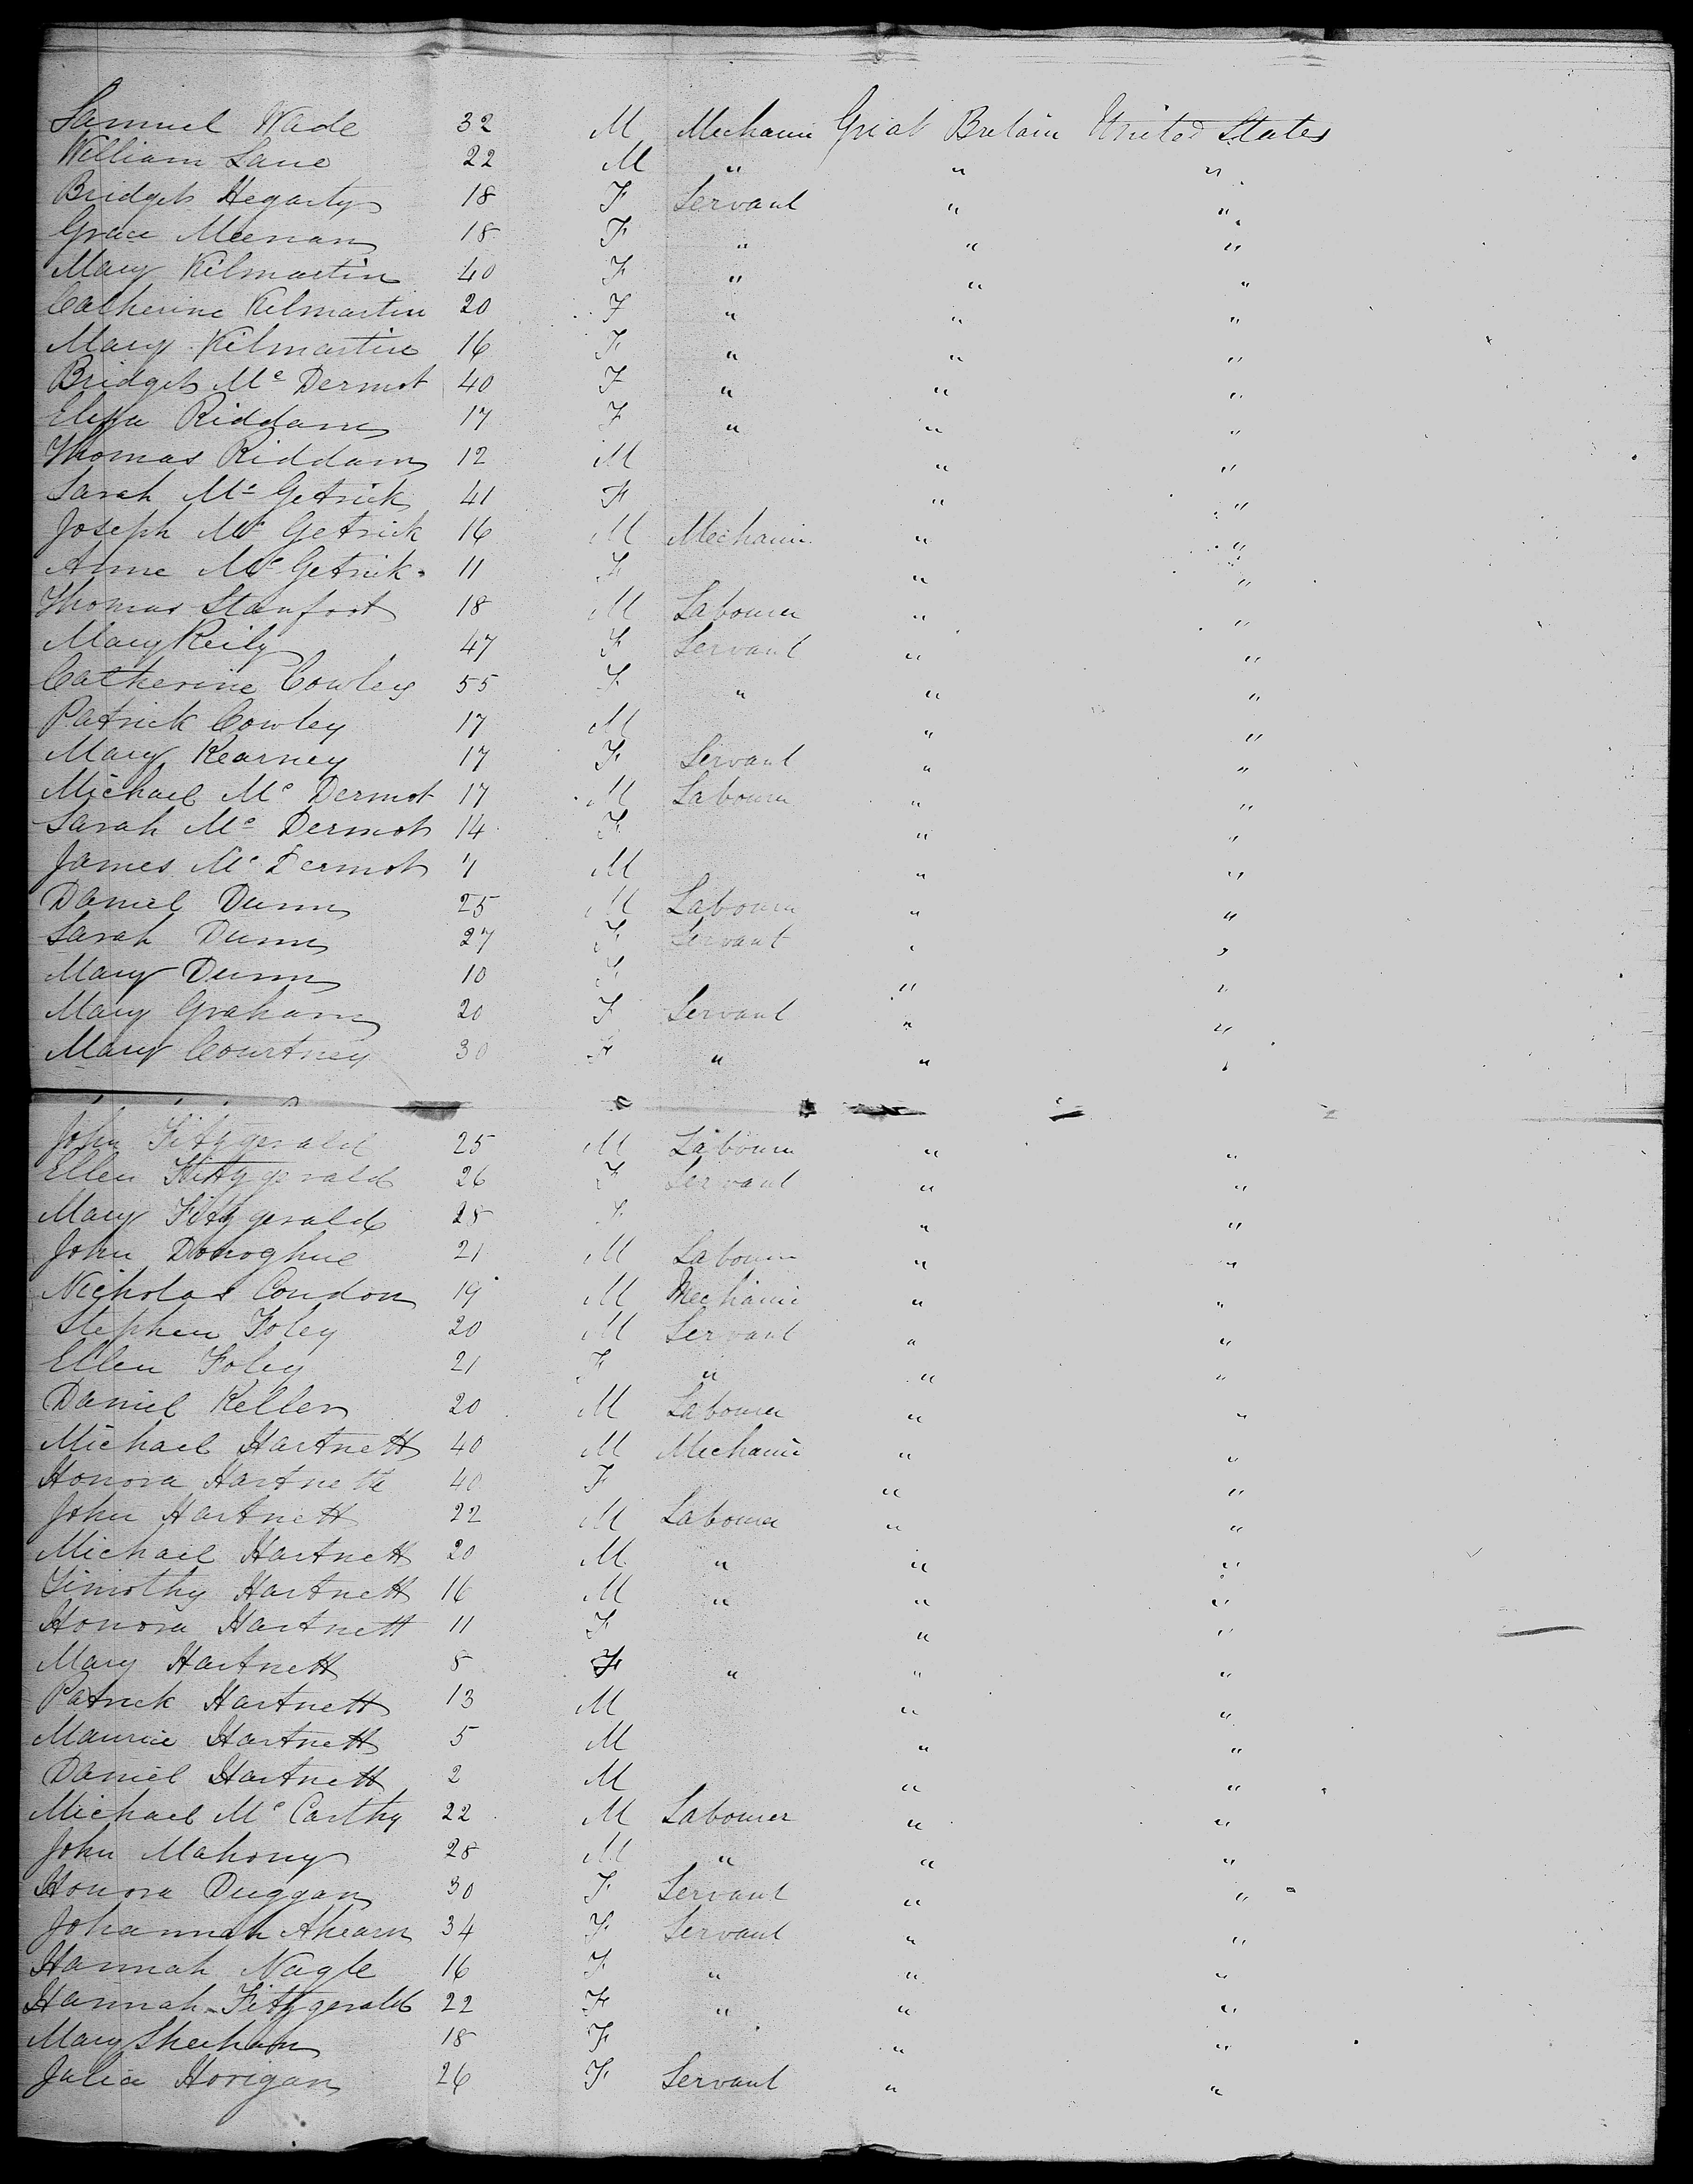 Samuel Wade 32 M Mechanic Great Britain United States
William Lane 22 M " " "
Bridget Hegarty 18 F Servant " "
Grace Meenan 18 F " " "
Mary Kilmartin 40 F " " "
Catherine Kilmartin 20 F " " "
Mary Kilmartin 16 F " " "
Bridget Mc Dermot 40 F " " "
Eliza Riddam 17 F " " "
Thomas Riddam 12 M " "
Sarah Mc Getrick 41 F " "
Joseph Mc Getrick 16 M Mechanic " "
Anne Mc Getrick 11 F " "
Thomas Stanfort 18 M Labourer " "
Mary Reily 47 F Servant " "
Catherine Cowley 55 F " " "
Patrick Cowley 17 M " "
Mary Kearney 17 F Servant " "
Michael Mc Dermot 17 M Labourer " "
Sarah Mc Dermot 14 F " "
James Mc Dermot 7 M " "
Daniel Dunn 25 M Labourer " "
Sarah Dunn 27 F Servant " "
Mary Dunn 10 F " "
Mary Graham 20 F Servant " "
Mary Courtney 30 F " " "
John Fitzgerald 25 M Labourer " "
Ellen Fitzgerald 26 F Servant " "
Mary Fitzgerald F " "
John Donoghue 21 M Labourer " "
Nicholas Condon 19 M Mechanic " "
Stephen Foley 20 M Servant " "
Ellen Foley 21 F " " "
Daniel Keller 20 M Labourer " "
Michael Hartnett 40 M Mechanic " "
Honora Hartnett 40 F " "
John Hartnett 22 M Labourer " "
Michael Hartnett 20 M " " "
Timothy Hartnett 16 M " " "
Honora Hartnett 11 F " "
Mary Hartnett 8 F " " "
Patrick Hartnett 13 M " "
Maurice Hartnett 5 M " "
Daniel Hartnett 2 M " "
Michael Mc Carthy 22 M Labourer " "
John Mahony 28 M " " "
Honora Duggan 30 F Servant " "
Johannah Ahearn 34 F Servant " "
Hannah Nagle 16 F " " "
Hannah Fitzgerald 22 F " " "
Mary Sheehan 18 F " "
Julia Horigan 26 F Servant " "